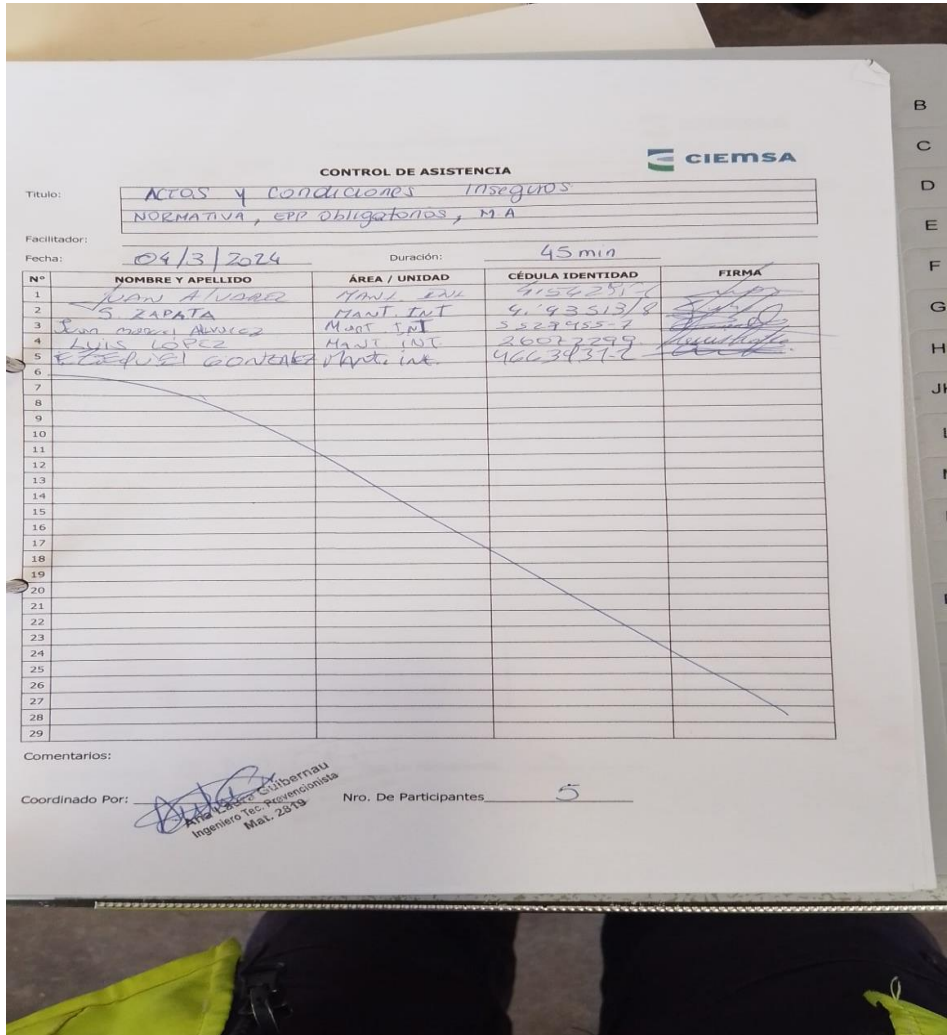 CIEMSA
CONTROL DE ASISTENCIA
Titulo: ACTOS y condiciones Inseguros
NORMATIVA, EPP Obligatorios, M.A
Facilitador:
Fecha: 04/3/2024 Duración: 45 min
Nº NOMBRE Y APELLIDO ÁREA / UNIDAD CÉDULA IDENTIDAD FIRMA
1 JUAN ALVAREZ MANT INT
2 S. ZAPATA MANT. INT 4.493513/8
3 ALVAREZ MANT INT 5527455-7
4 LUIS LÓPEZ MANT INT. 26077299
5 EZEQUIEL GONZALEZ Mant. int. 4663937-2
6
7
8
9
10
11
12
13
14
15
16
17
18
19
20
21
22
23
24
25
26
27
28
29
Comentarios:
Coordinado Por: Ana Laura Guibernau
Ingeniero Tec. Prevencionista
Mat. 2819
Nro. De Participantes 5
B
C
D
E
F
G
H
JK
L